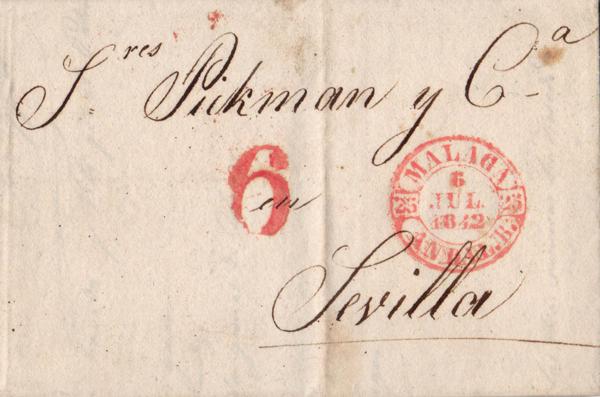 Sres Pickman y Cª
6
en
MALAGA
6
JUL.
1842
Sevilla